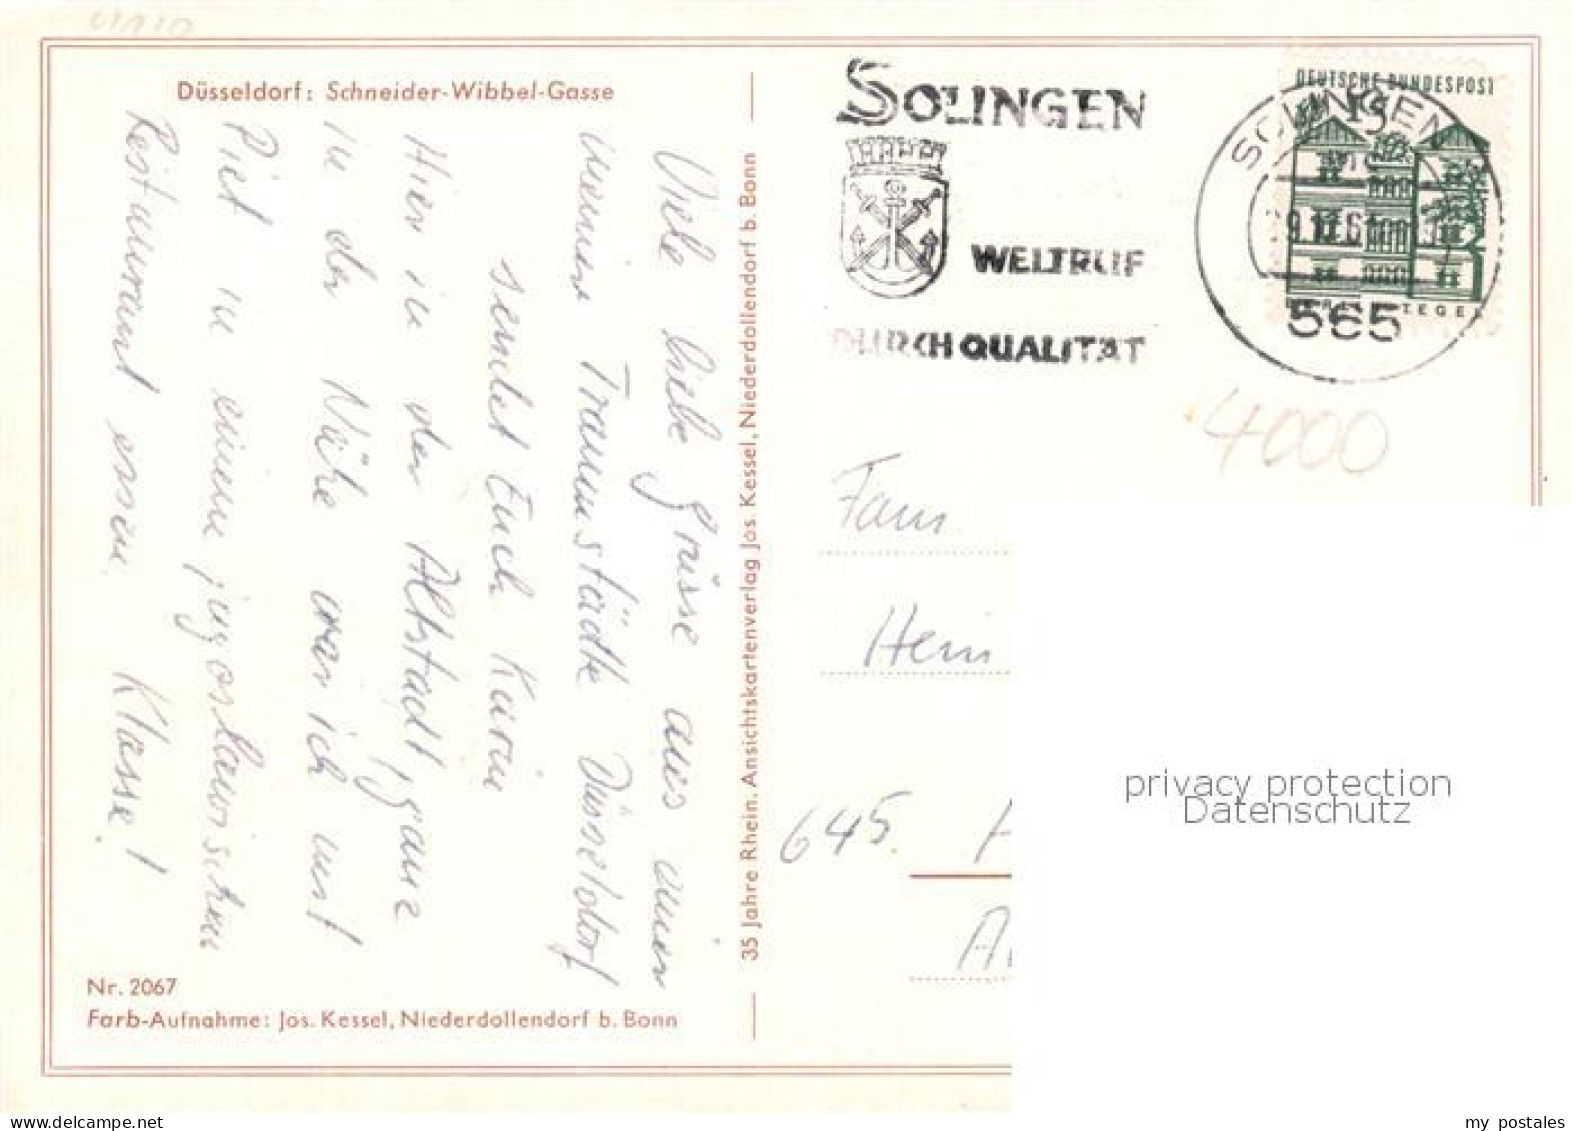 Düsseldorf: Schneider-Wibbel-Gasse
Viele liebe Grüsse aus einer
meiner Traumstädte Düsseldorf
sendet Euch Karin
Hier in der Altstadt, ganz
in der Nähe war ich mit
Piet in einem jugoslawischen
Restaurant essen. Klasse!
Nr. 2067
Farb-Aufnahme: Jos. Kessel, Niederdollendorf b. Bonn
35 Jahre Rhein. Ansichtskartenverlag Jos. Kessel, Niederdollendorf b. Bonn
SOLINGEN
WELTRUF
DURCH QUALITÄT
DEUTSCHE BUNDESPOST
15
TEGEL
SOLINGEN
565
4000
Fam.
Hein
645.
privacy protection
Datenschutz
www.delcampe.net
my_postales